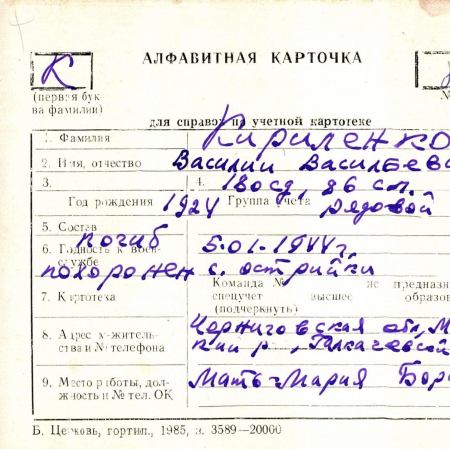 К
АЛФАВИТНАЯ КАРТОЧКА
(первая бук-
ва фамилии)
№
для справок по учетной картотеке
1. Фамилия Кириленко
2. Имя, отчество Василий Васильев
3. 4. 180 сд, 86 сп.
Год рождения 1924 Группа учета рядовой
5. Состав
6. Годность к воен. службе погиб 5.01.1944 г.
похоронен с. острийки
7. Картотека Команда № не предназна
спецучет высшее образов
(подчеркнуть)
8. Адрес жительства и № телефона Черниговская обл, М
кий р.,
9. Место работы, должность и № тел. ОК Мать-Мария Бор
Б. Церковь, гортип., 1985, з. 3589—20000